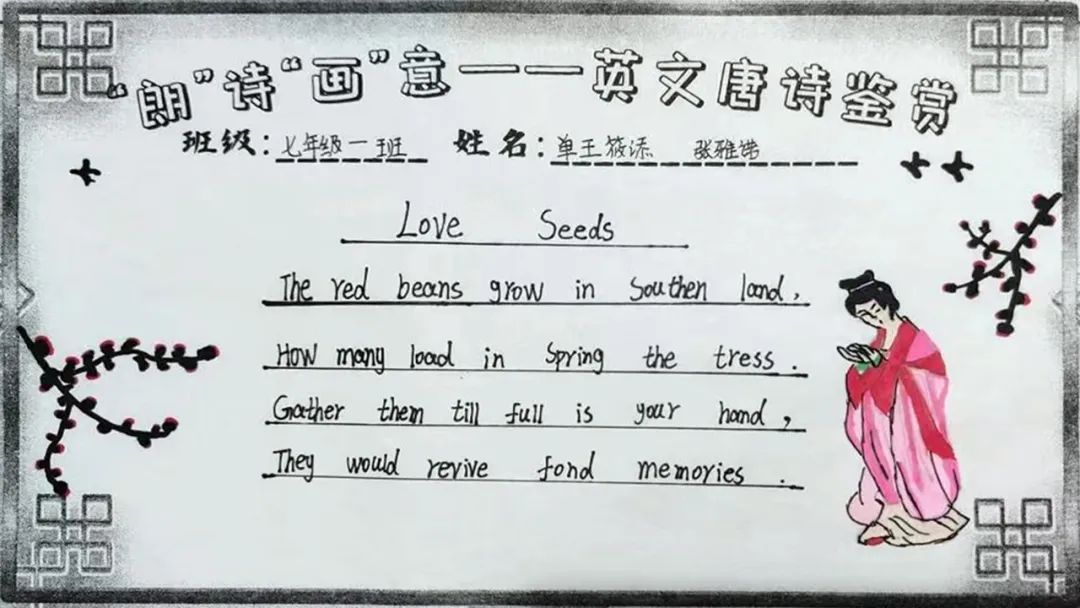 “朗”诗“画”意——英文唐诗鉴赏
班级：七年级一班 姓名：单王筱添 张雅
Love Seeds
The red beans grow in Southen land,
How many load in Spring the tress.
Gather them till full is your hand,
They would revive fond memories.